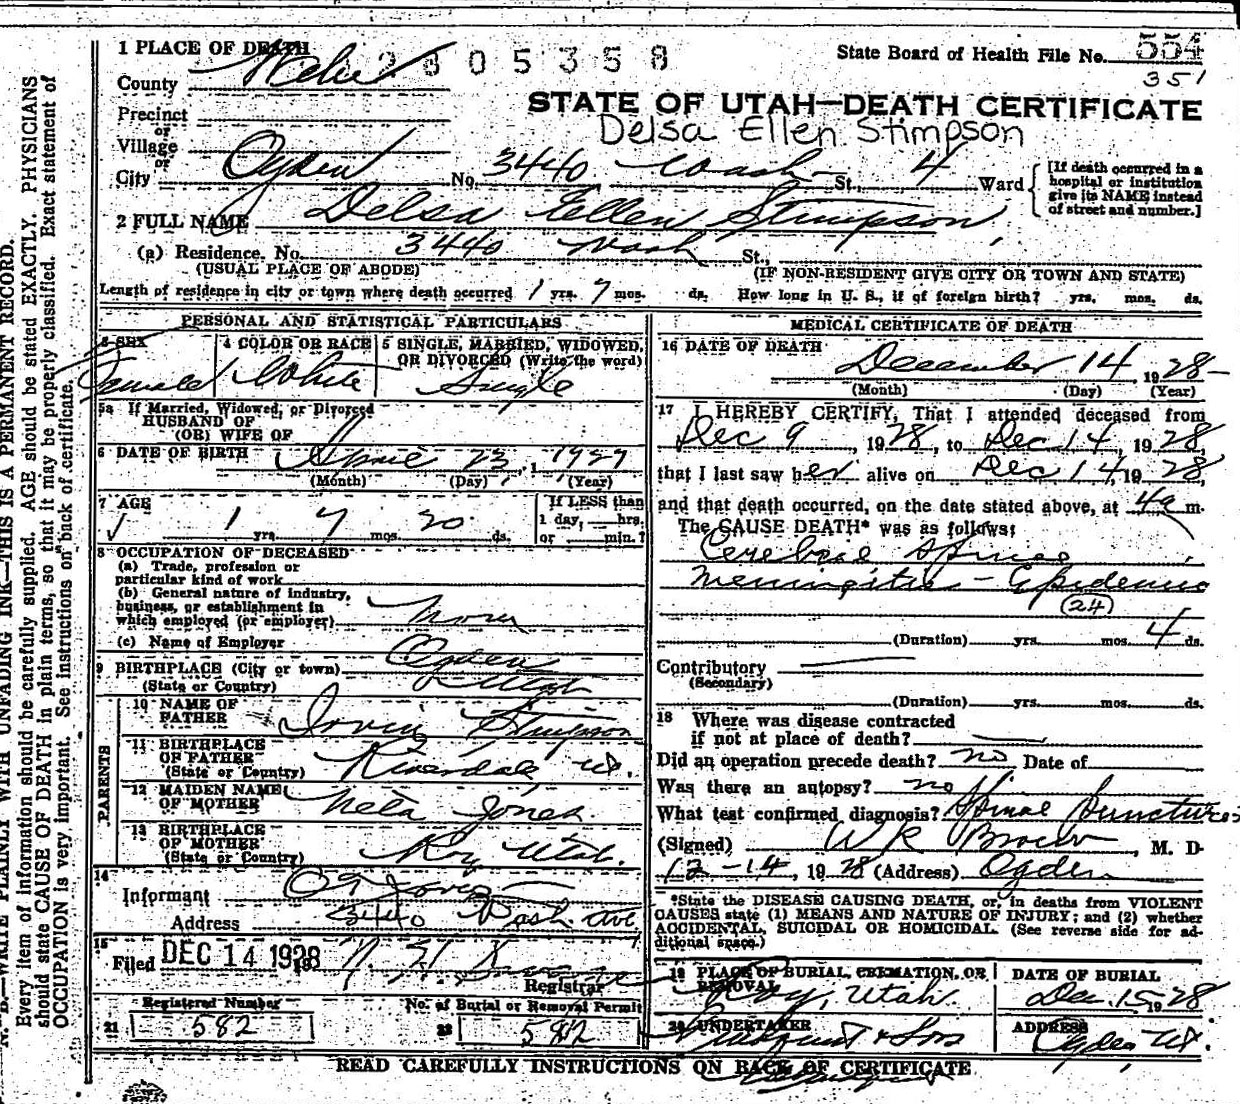 N. B.—WRITE PLAINLY WITH UNFADING INK—THIS IS A PERMANENT RECORD.
Every item of information should be carefully supplied. AGE should be stated EXACTLY. PHYSICIANS
should state CAUSE OF DEATH in plain terms, so that it may be properly classified. Exact statement of
OCCUPATION is very important. See instructions on back of certificate.
1 PLACE OF DEATH
2805358
State Board of Health File No. 554
351
County Weber
STATE OF UTAH—DEATH CERTIFICATE
Precinct
Delsa Ellen Stimpson
or
Village
or
City Ogden No. 3440 Wash St., 4 Ward
[If death occurred in a
hospital or institution
give its NAME instead
of street and number.]
2 FULL NAME Delsa Ellen Stimpson,
(a) Residence. No. 3440 Wash St.,
(USUAL PLACE OF ABODE) (IF NON-RESIDENT GIVE CITY OR TOWN AND STATE)
Length of residence in city or town where death occurred 1 yrs. 7 mos. ds. How long in U. S., if of foreign birth? yrs. mos. ds.
PERSONAL AND STATISTICAL PARTICULARS
3 SEX 4 COLOR OR RACE 5 SINGLE, MARRIED, WIDOWED,
OR DIVORCED (Write the word)
Female White Single
5a If Married, Widowed, or Divorced
HUSBAND OF
(OR) WIFE OF
6 DATE OF BIRTH April 23, 1927
(Month) (Day) (Year)
7 AGE
1 yrs. 7 mos. 20 ds.
If LESS than
1 day, hrs.
or min.?
8 OCCUPATION OF DECEASED
(a) Trade, profession or
particular kind of work
(b) General nature of industry,
business, or establishment in
which employed (or employer) None
(c) Name of Employer
9 BIRTHPLACE (City or town) Ogden
(State or Country) Utah
PARENTS
10 NAME OF
FATHER Irvin Stimpson
11 BIRTHPLACE
OF FATHER
(State or Country) Riverdale, Ut.
12 MAIDEN NAME
OF MOTHER Neta Jones.
13 BIRTHPLACE
OF MOTHER
(State or Country) Roy Utah.
14
Informant Jones
Address 3440 Wash Ave
15
Filed DEC 14 1928
Registrar
Registered Number
21 582
No. of Burial or Removal Permit
22 582
MEDICAL CERTIFICATE OF DEATH
16 DATE OF DEATH
December 14, 1928
(Month) (Day) (Year)
17 I HEREBY CERTIFY, That I attended deceased from
Dec 9 1928, to Dec 14, 1928
that I last saw her alive on Dec 14, 1928,
and that death occurred, on the date stated above, at 4a m.
The CAUSE DEATH* was as follows:
Cerebral Spinal
Meningitis - Epidemic
(24)
(Duration) yrs. mos. 4 ds.
Contributory
(Secondary)
(Duration) yrs. mos. ds.
18 Where was disease contracted
if not at place of death?
Did an operation precede death? no Date of
Was there an autopsy? no
What test confirmed diagnosis? Spinal Punctures
(Signed) W R Brown, M. D.
12-14, 1928 (Address) Ogden
*State the DISEASE CAUSING DEATH, or, in deaths from VIOLENT
CAUSES state (1) MEANS AND NATURE OF INJURY; and (2) whether
ACCIDENTAL, SUICIDAL OR HOMICIDAL. (See reverse side for ad-
ditional space.)
19 PLACE OF BURIAL, CREMATION, OR
REMOVAL
Roy, Utah.
DATE OF BURIAL
Dec. 15 1928
20 UNDERTAKER
Lindquist & Sons
ADDRESS
Ogden Ut.
READ CAREFULLY INSTRUCTIONS ON BACK OF CERTIFICATE